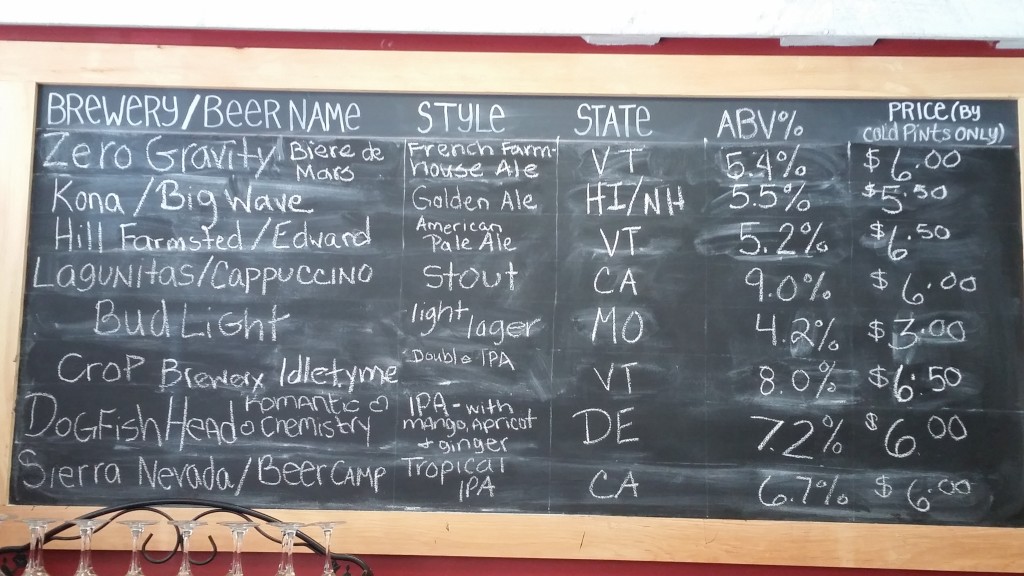 BREWERY/BEER NAME STYLE STATE ABV% PRICE (BY COLD PINTS ONLY)
Zero Gravity Biere de Mars French Farm-House Ale VT 5.4% $6.00
Kona/Big Wave Golden Ale HI/NH 5.5% $5.50
Hill Farmsted/Edward American Pale Ale VT 5.2% $6.50
LAGUNITAS/CAPPUCCINO Stout CA 9.0% $6.00
Bud Light light lager MO 4.2% $3.00
CROP Brewery Idletyme Double IPA VT 8.0% $6.50
DOGFISH HEAD romantic chemistry IPA-with mango, Apricot + ginger DE 7.2% $6.00
Sierra Nevada/Beer CAMP Tropical IPA CA 6.7% $6.00